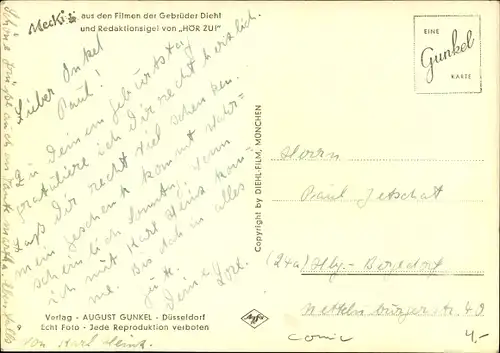 Mecki aus den Filmen der Gebrüder Diehl
und Redaktionsigel von „HÖR ZU!"
Lieber Onkel
Paul!
Zu Deinem Geburtstag
gratuliere ich Dir recht herzlich
Laß Dir recht viel schenken.
mein Geschenk kommt wahr-
scheinlich Sonntag, wenn
ich mit Karl Heinz kom-
me. Bis dahin alles
gute.
Deine Lore.
von Karl Heinz
Schöne Grüße auch an Tante Martha
Verlag - AUGUST GUNKEL - Düsseldorf
Echt Foto - Jede Reproduktion verboten
9
Agfa
Copyright by DIEHL-FILM, MÜNCHEN
EINE
Gunkel
KARTE
Herrn
Paul Jetschat
(24a) Hbg.-Bergedorf
40
comic
4,-